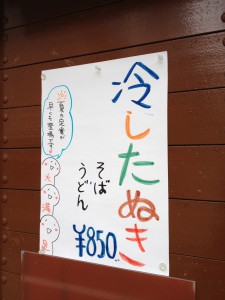 冷したぬき
そば
うどん
¥850
夏の定番が
早くも登場です!
大
満
足